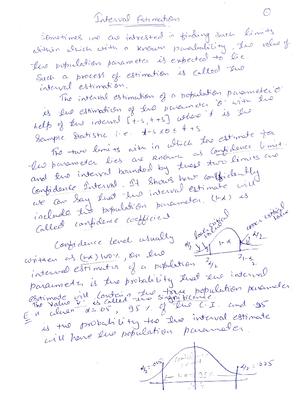 Interval Estimation
Sometimes we are interested in finding such limits
within which with a known probability, the value of
the population parameter is expected to lie
Such a process of estimation is called the
interval estimation.
The interval estimation of a population parameter 'θ'
is the estimation of the parameter 'θ' with the
help of the interval [t-s, t+s] where 't' is the
Sample Statistic i.e. t-s ≤ θ ≤ t+s
The two limits with in which the estimate for
the parameter lies are known as Confidence limit
and the interval bounded by these two limits are
Confidence Interval. It shows how confidently
we can say that the interval estimate will
include the population parameter. (1-α) is
called confidence coefficient
Confidence level usually
written as (1-α)100%, on the
interval estimates of a population
parameter is the probability that the interval
estimate will contain the true population parameter
The value 'α' is called the significance
α=.05, 95% of the C.I. and .95
is the probability too the interval estimate
will have the population parameter.
1-α
α/2
= .025